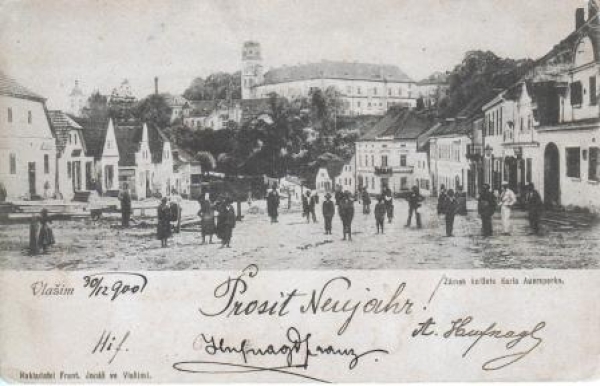 Vlašim 30/12 900
Zámek knížete Karla Auersperka.
Prosit Neujahr!
Hif.
Hufnagl Franz
A. Haufnagl
Nakladatel Frant. Janáš ve Vlašimi.